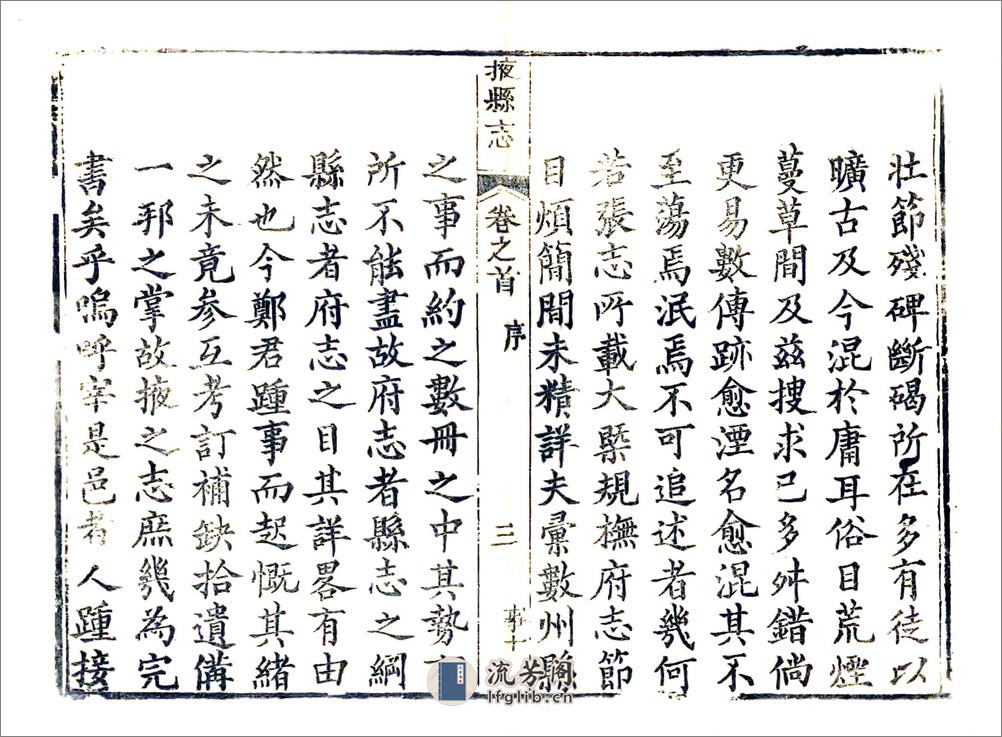 壮節殘碑斷碣所在多有徒以
曠古及今混於庸耳俗目荒煙
蔓草間及茲搜求已多舛錯倘
更易數傳跡愈湮名愈混其不
至蕩焉泯焉不可追述者幾何
若張志所載大槩規撫府志節
目煩簡間未精詳夫彙數州縣
掖縣志
卷之首
序
三
之事而約之數冊之中其勢
所不能盡故府志者縣志之綱
縣志者府志之目其詳畧有由
然也今鄭君踵事而起慨其緒
之未竟參互考訂補缺拾遺備
一邦之掌故掖之志庶幾為完
書矣乎嗚呼宰是邑者人踵接
流芳阁
lfglib.cn